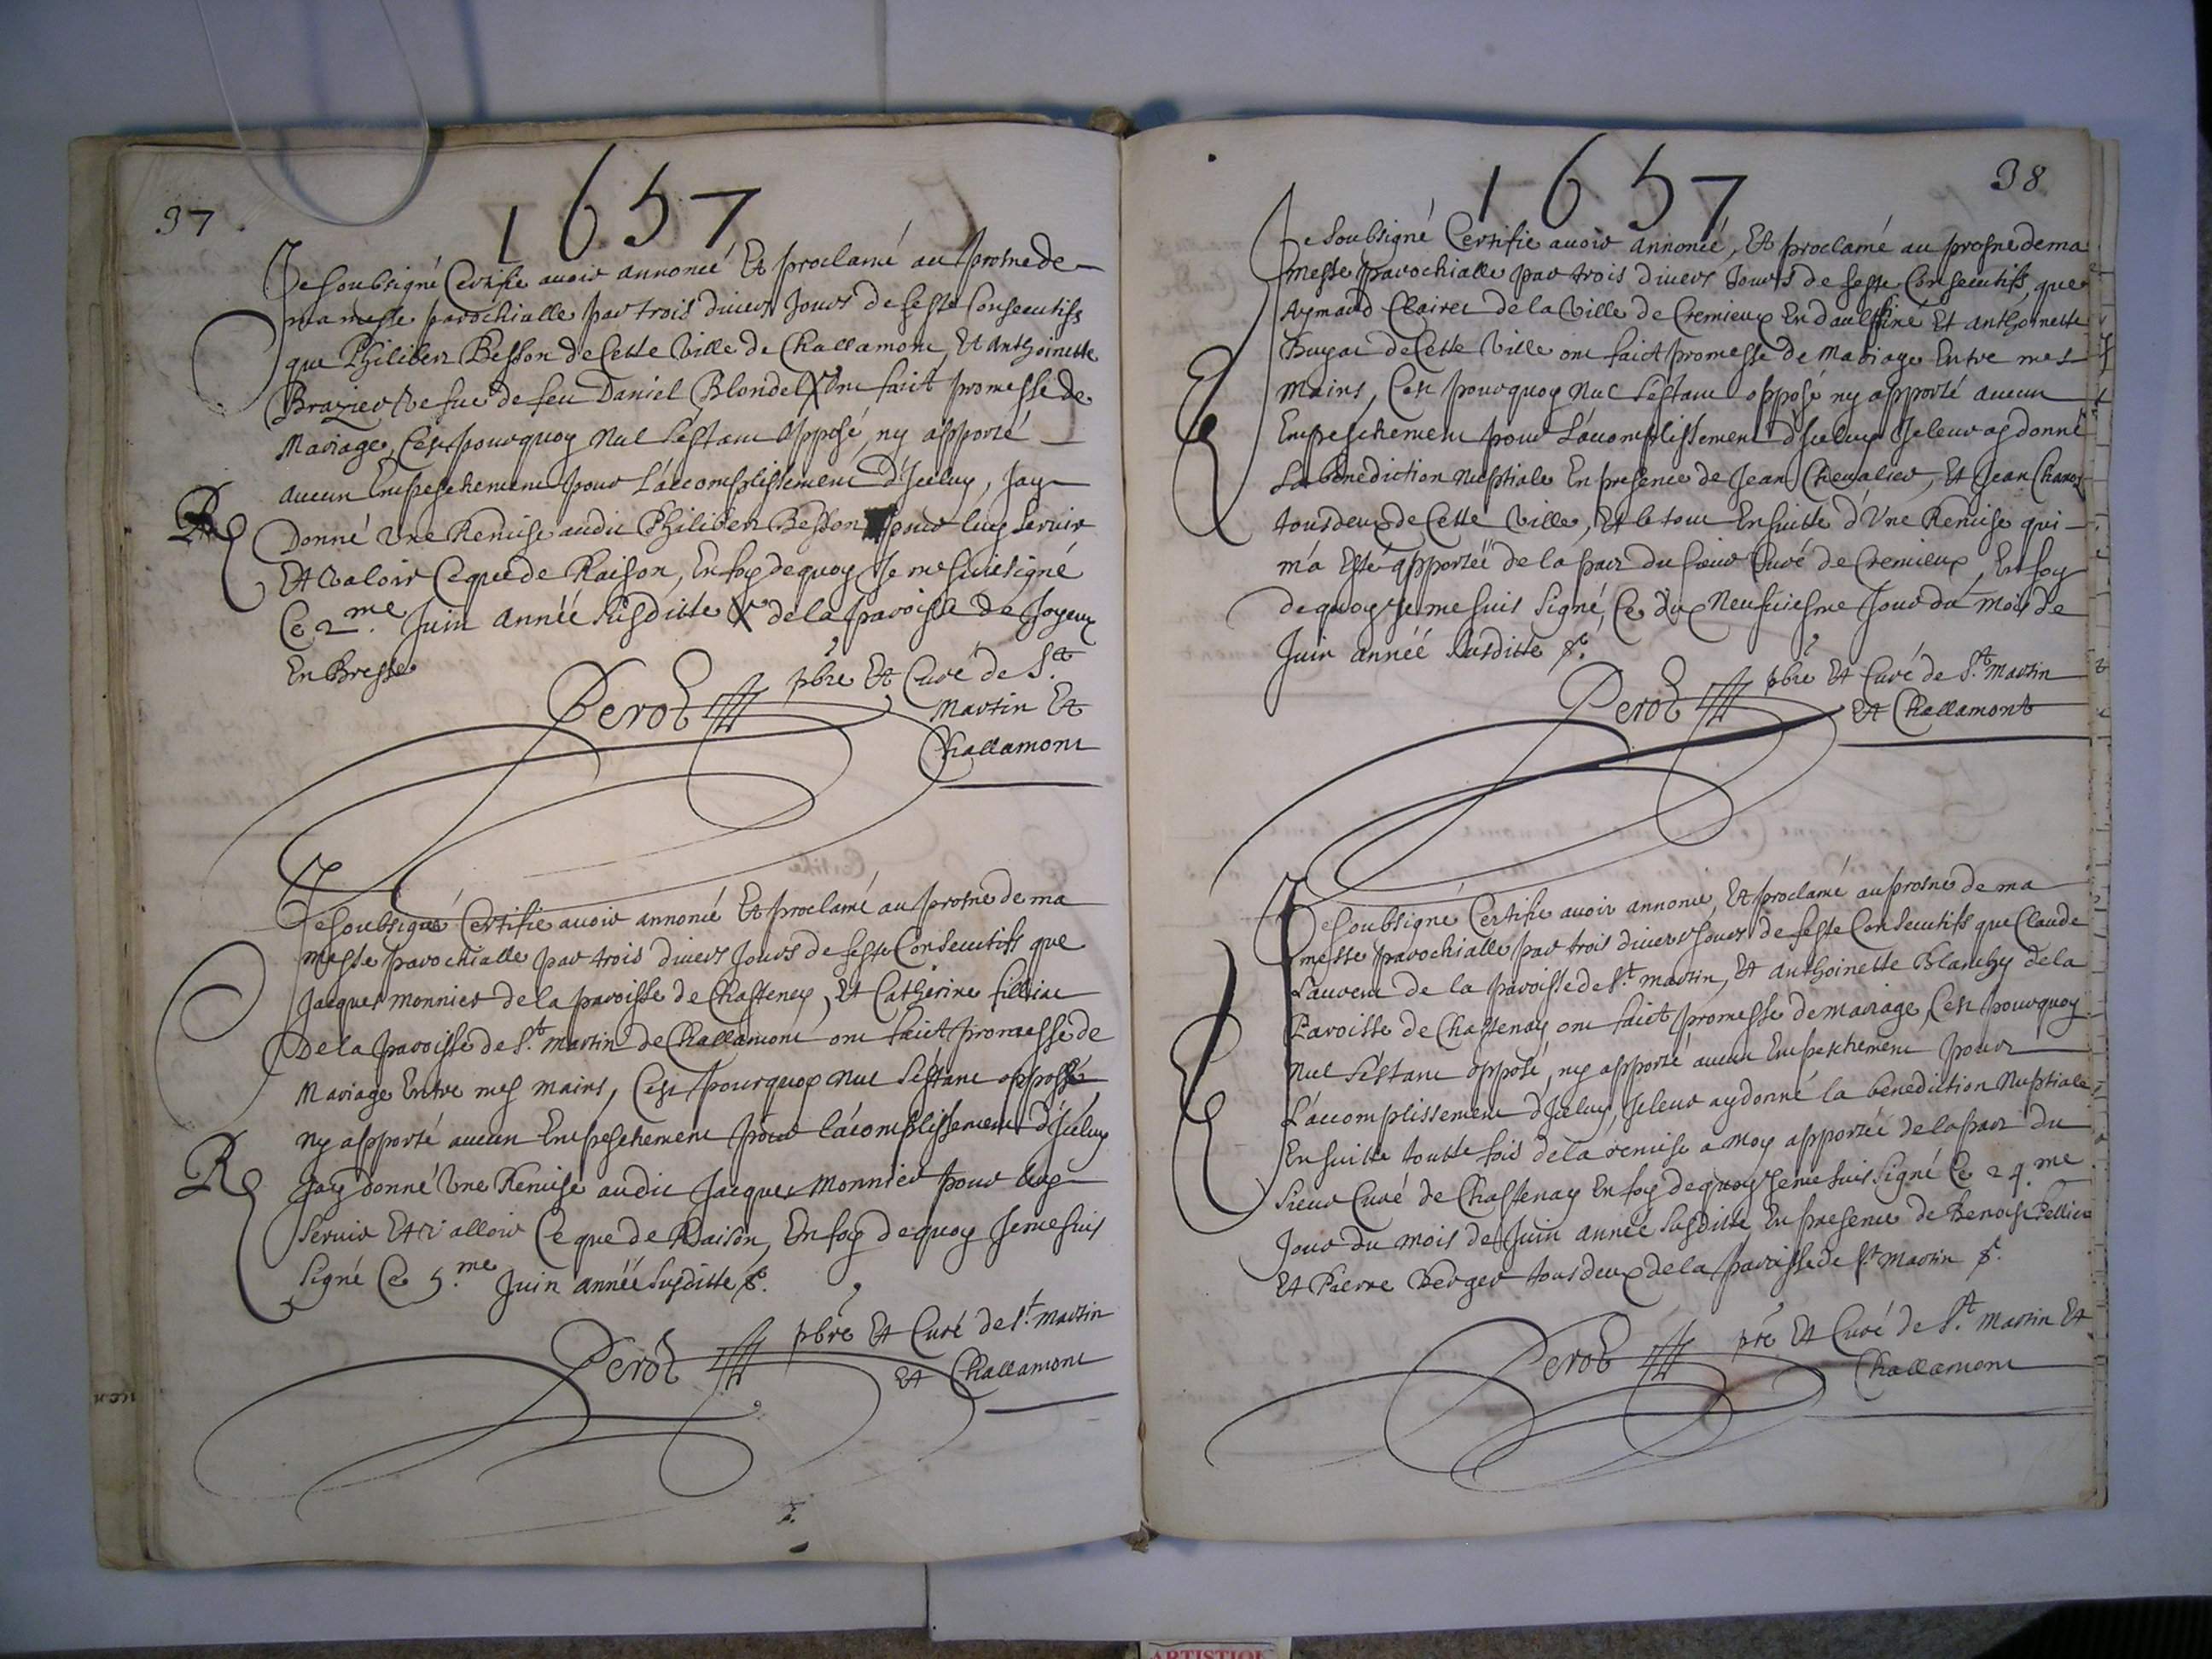 37
1657
Je soubsigné Certifie auoir annoncé Et proclamé au prosne de
ma messe parochialle par trois diuers Jours de feste Consecutifs
que Philibert Besson de Cette Ville de Challamont, Et Anthoinette
Brazier Vefue de feu Daniel Blondel X ont faict promesse de
Mariage, Cest pourquoy Nul Sestant opposé, ny apporté
aucun Empeschement pour L'accomplissement d'Jceluy, Jay
R
Donné Vne Remise audit Philibert Besson pour luy seruir
Et Valoir Ceque de Raison, En foy dequoy Je me suis signé
Ce 2.me Juin année Susditte X de la paroisse de Joyeux
En Bresse
Perot pbre Et Curé de St
Martin Et
Challamont
Je soubsigné Certifie auoir annoncé Et proclamé au prosne de ma
messe parochialle par trois diuers Jours de feste Consecutifs que
Jacques Monnier de la paroisse de Chastenay, Et Catherine filliat
De la paroisse de St. Martin de Challamont ont faict promesse de
Mariage Entre mes mains, Cest pourquoy Nul Sestant opposé,
ny apporté aucun Empeschement pour L'acomplissement d'Jceluy
R
Jay donné Vne Remise audit Jacques Monnier pour luy
Seruir Et Valloir Ceque de Raison, En foy dequoy Jeme suis
Signé Ce 5.me Juin année Susditte &c.
Perot pbre Et Curé de St. Martin
Et Challamont
38
1657
Je Soubsigné Certifie auoir annoncé, Et proclamé au prosne dema
messe parochialle par trois diuers Jours de feste Consecutifs, que
Aymard Clairet de la Ville de Cremieux En daulphiné Et Anthoinette
de Cette Ville ont faict promesse de Mariage Entre mes
mains, Cest pourquoy Nul Sestant opposé ny apporté aucun
Empeschement pour L'acomplissement d'Jceluy Je leur ay donné
La benediction Nuptiale En presence de Jean Cheualier, Et Jean
tous deux de Cette Ville, Et le tout Ensuitte d'Vne Remise qui
m'a Esté apportée de la part du sieur Curé de Cremieux, En foy
dequoy Je me suis Signé, Ce dix Neufuiesme Jour du Mois de
Juin année Susditte &c.
Perot pbre Et Curé de St. Martin
Et Challamont
Je Soubsigné Certifie auoir annoncé, Et proclamé au prosne de ma
messe parochialle par trois diuers Jours de feste Consecutifs que Claude
Lauvent de la paroisse de St. Martin, Et Anthoinette Blanchy de la
Paroisse de Chastenay ont faict promesse de mariage, Cest pourquoy
Nul Sestant opposé, ny apporté aucun Empeschement pour
L'accomplissement d'Jceluy, Je leur ay donné la benediction Nuptiale
Ensuitte toutte fois de la remise a moy apportée de la part du
Sieur Curé de Chastenay En foy dequoy Je me suis Signé Ce 24.me
Jour du mois de Juin année Susditte, En presence de Benoist Pellicu
Et Pierre Berger tous deux de la paroisse de St Martin &c.
Perot pre Et Curé de St. Martin Et
Challamont